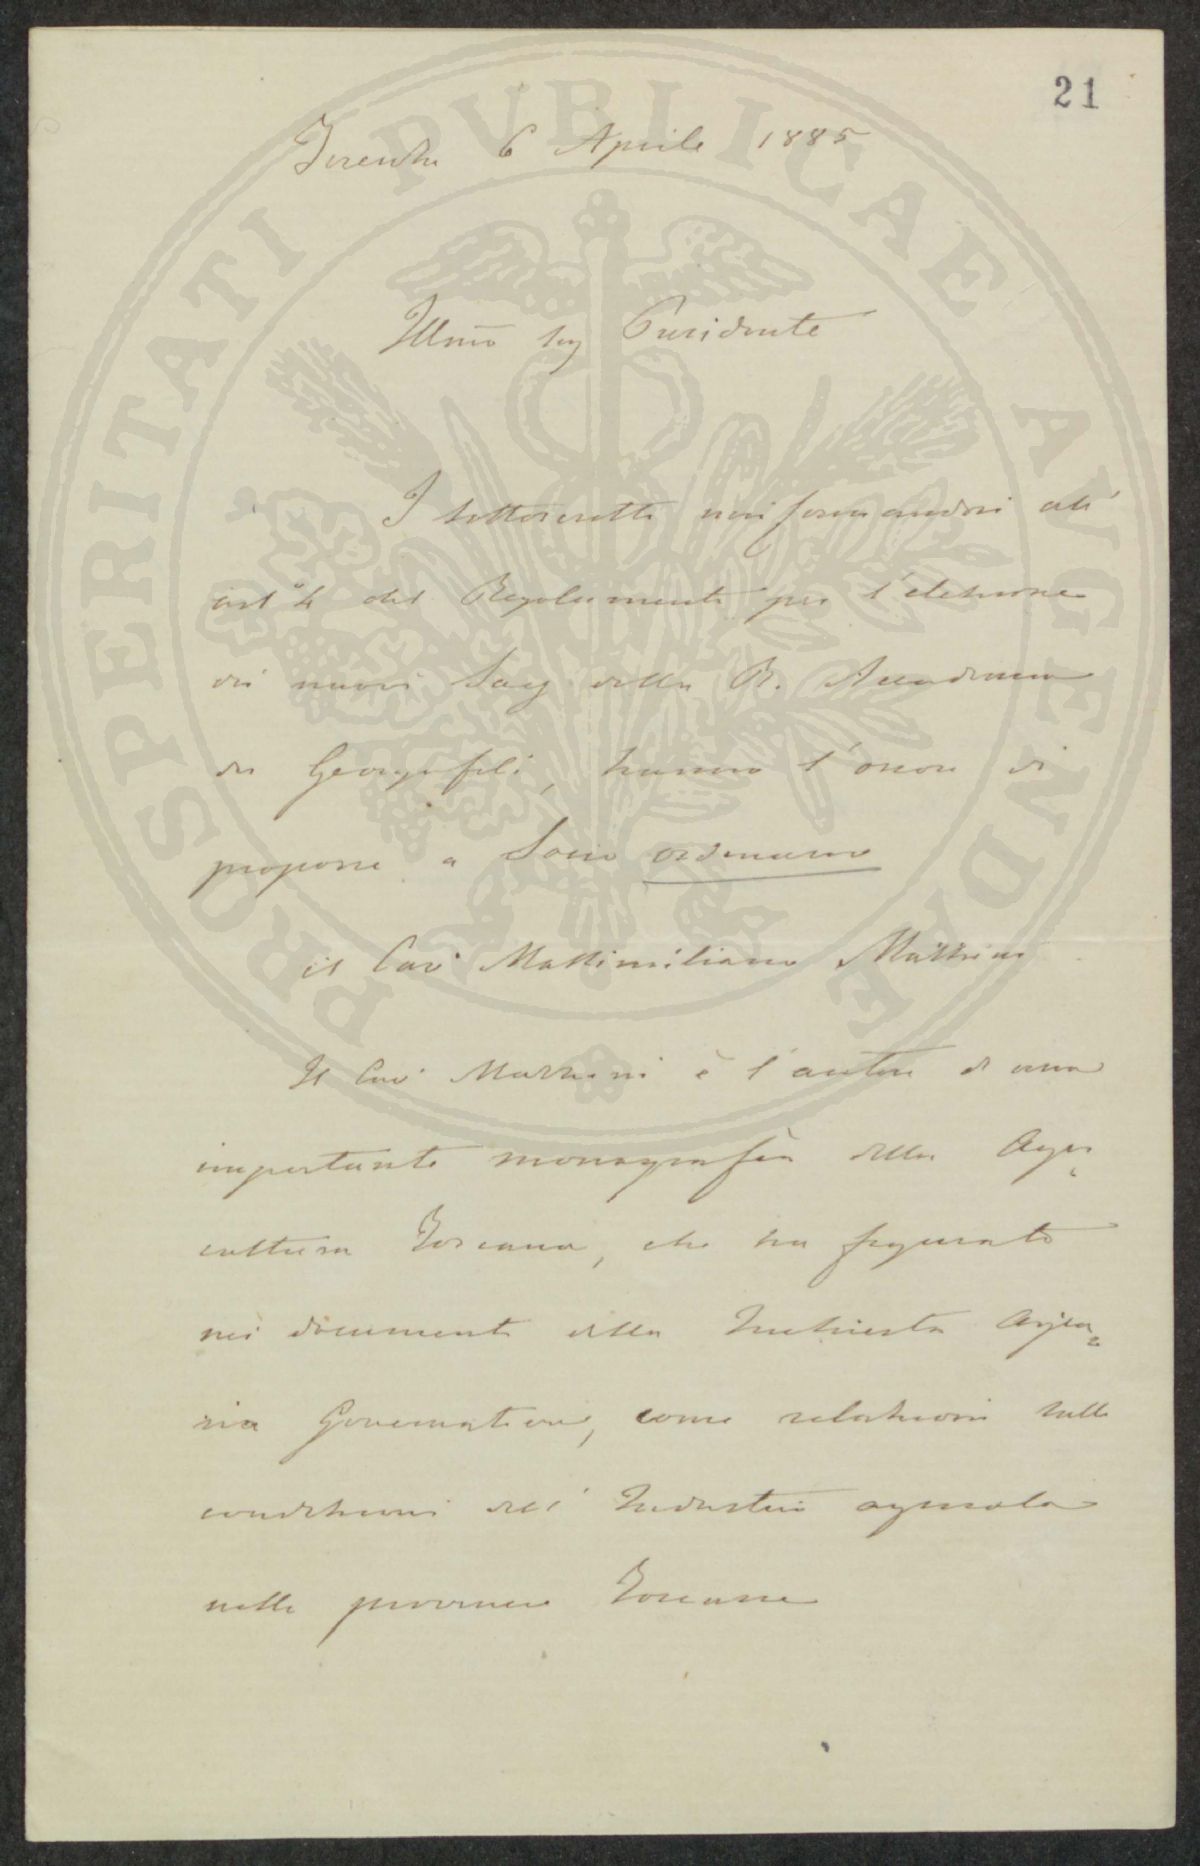 21
Firenze 6 Aprile 1885
Illmo Sig Presidente
I sottoscritti uniformandosi all'
art° 4 del Regolamento per l'elezione
dei nuovi Socj della R. Accademia
dei Georgofili, hanno l'onore di
proporre a Socio ordinario
il Cav. Massimiliano Mazzini
Il Cav. Mazzini è l'autore di una
importante monografia della Agri
cultura Toscana, che ha figurato
nei documenti della Inchiesta Agra
ria Governativa, come relazione sulle
condizioni dell'Industria agricola
nelle provincie Toscane
PROSPERITATI PVBLICAE AVGENDAE